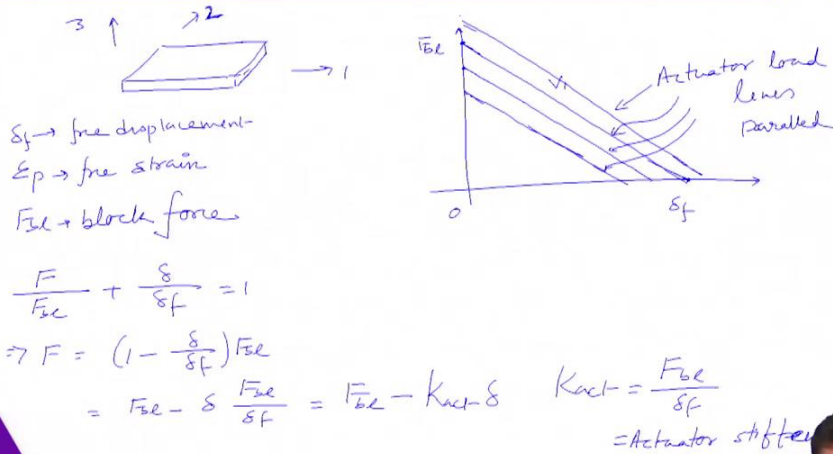 3
2
1
δf → free displacement
εp → free strain
Fbl → block force
F/Fbl + δ/δf = 1
⇒ F = (1 - δ/δf) Fbl
= Fbl - δ Fbl/δf = Fbl - Kact δ
Kact = Fbl/δf
= Actuator
Fbl
V1
Actuator load
lines
parallel
0
δf